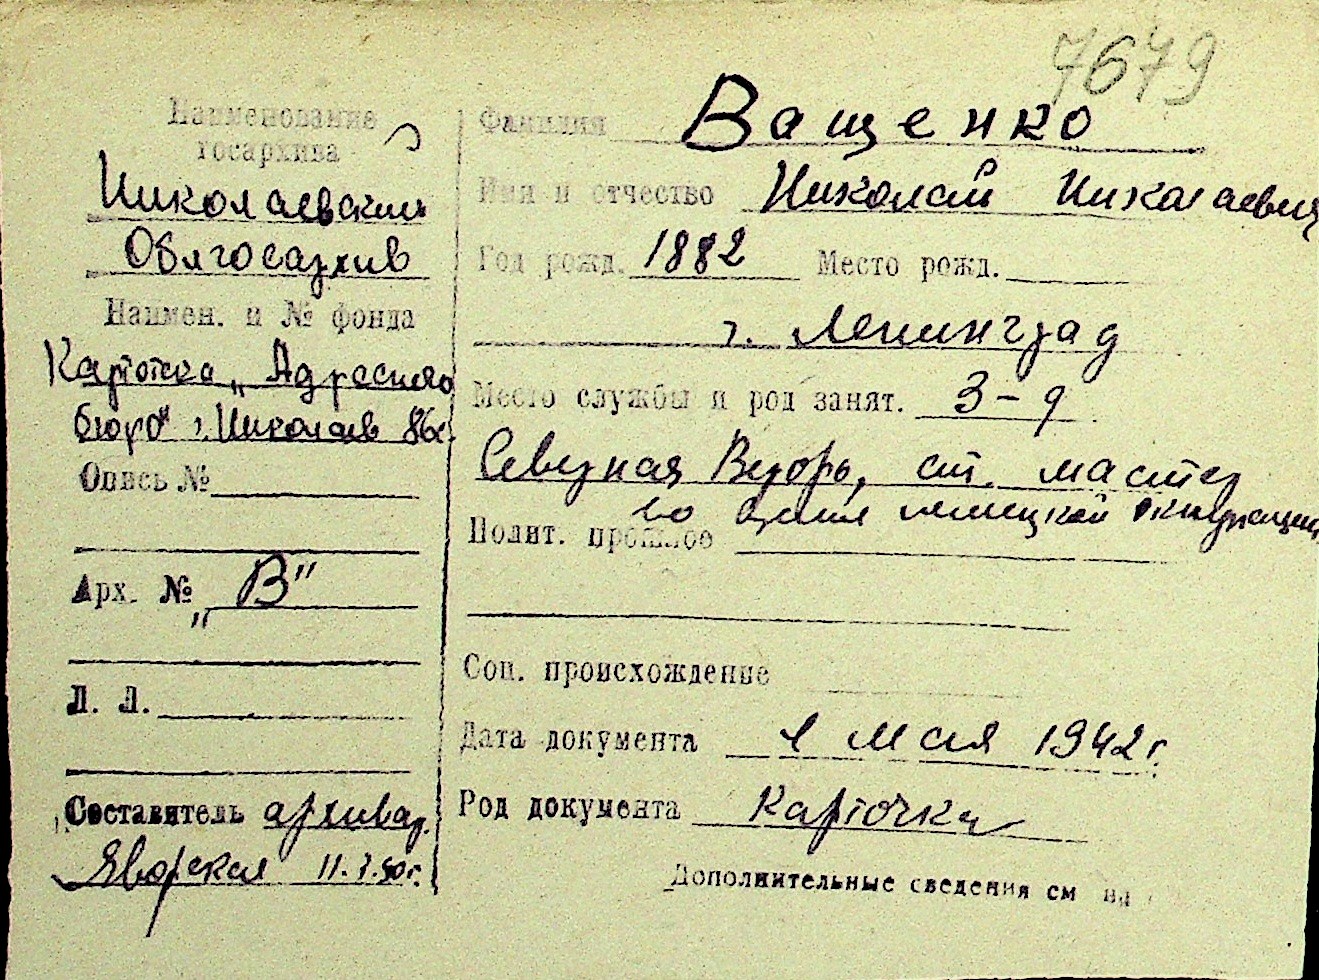 7679
Наименование
госархива
Николаевский
Облгосархив
Наимен. и № фонда
Картотека „Адресного
бюро" г. Николаев
Опись №
Арх. № „В"
Л. Л.
Составитель архивар.
Яворская 11.7.50г.
Фамилия Ващенко
Имя и отчество Николай Николаевич
Год рожд. 1882 Место рожд.
г. Ленинград
Место службы и род занят. З-д
Северная Верфь, ст. мастер
во время немецкой оккупации
Полит. прошлое
Соц. происхождение
Дата документа 1 мая 1942г.
Род документа Карточка
Дополнительные сведения см на